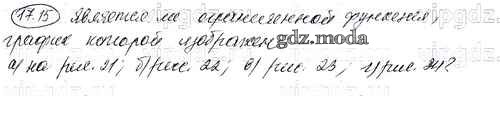 17.15 Является ли ограниченной функция,
график которой изображен
а) на рис. 21; б) рис. 22; в) рис. 23; г) рис. 24?
gdz.com